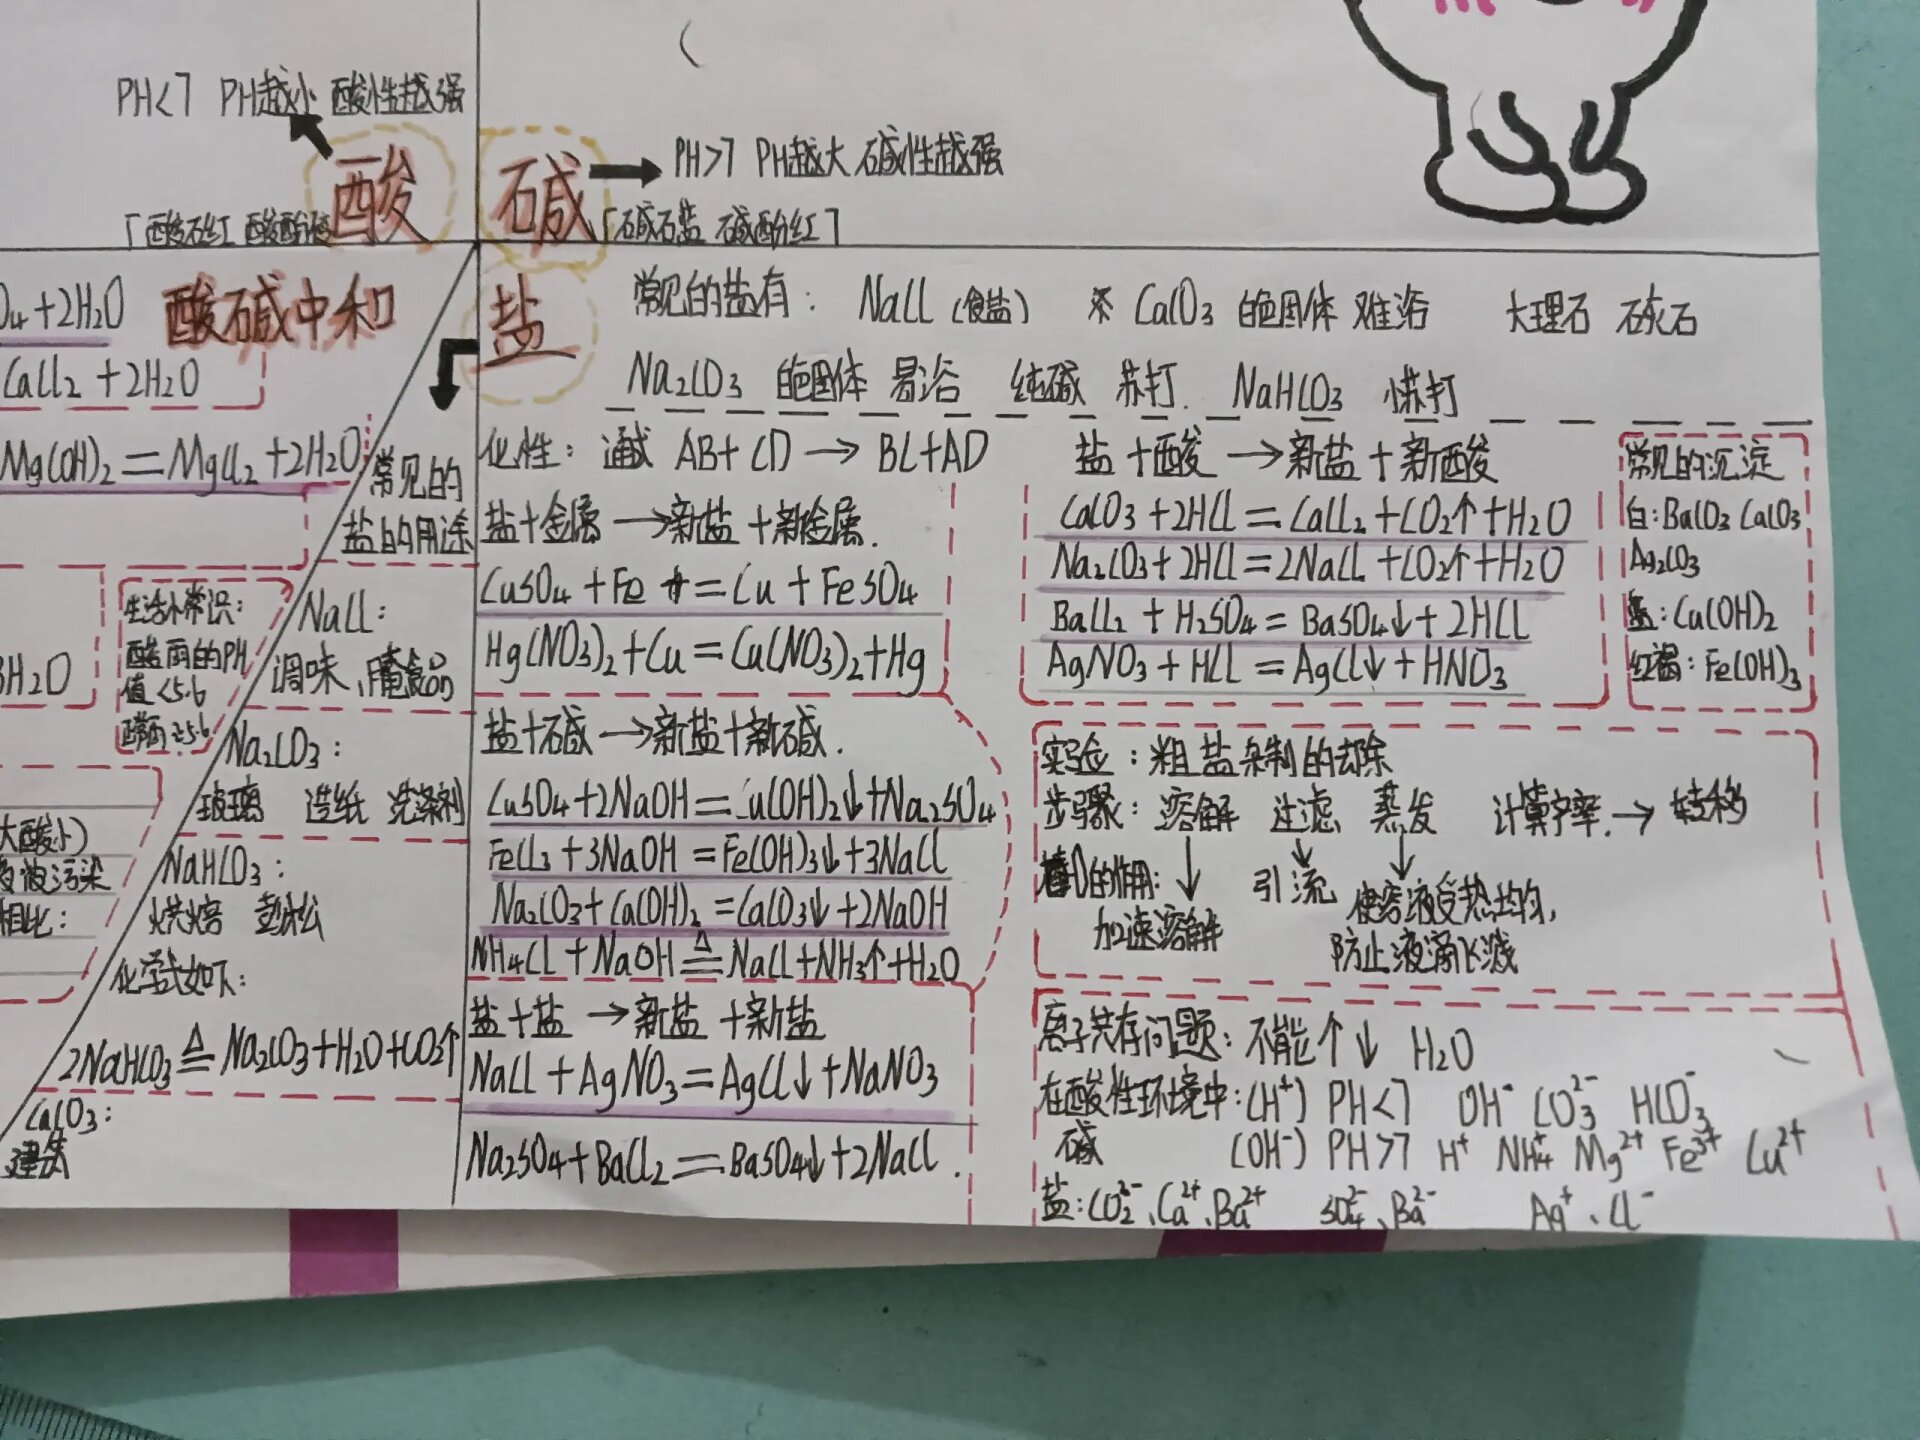 PH<7 PH越小 酸性越强
酸
「酸石红 酸酚
碱
PH>7 PH越大 碱性越强
「碱石蓝 碱酚红」
O₄+2H₂O
酸碱中和
CaCl₂+2H₂O
Mg(OH)₂=MgCl₂+2H₂O
3H₂O
生活小常识:
酸雨的PH
值<5.6
大酸小)
液污染
相比:
盐
常见的
盐的用途
NaCl:
调味、腌食品
Na₂CO₃:
玻璃 造纸 洗涤剂
NaHCO₃:
烘焙
化学式如下:
2NaHCO₃≜Na₂CO₃+H₂O+CO₂↑
CaCO₃:
建筑
常见的盐有: NaCl(食盐) CaCO₃ 白色固体 难溶 大理石 石灰石
Na₂CO₃ 白色固体 易溶 纯碱 苏打. NaHCO₃ 小苏打
化性: AB+CD→BC+AD
盐+金属→新盐+新金属.
CuSO₄+Fe=Cu+FeSO₄
Hg(NO₃)₂+Cu=Cu(NO₃)₂+Hg
盐+碱→新盐+新碱.
CuSO₄+2NaOH=Cu(OH)₂↓+Na₂SO₄
FeCl₃+3NaOH=Fe(OH)₃↓+3NaCl
Na₂CO₃+Ca(OH)₂=CaCO₃↓+2NaOH
NH₄Cl+NaOH≜NaCl+NH₃↑+H₂O
盐+盐→新盐+新盐
NaCl+AgNO₃=AgCl↓+NaNO₃
Na₂SO₄+BaCl₂=BaSO₄↓+2NaCl.
盐+酸→新盐+新酸
CaCO₃+2HCl=CaCl₂+CO₂↑+H₂O
Na₂CO₃+2HCl=2NaCl+CO₂↑+H₂O
BaCl₂+H₂SO₄=BaSO₄↓+2HCl
AgNO₃+HCl=AgCl↓+HNO₃
常见的沉淀
白:BaCO₃ CaCO₃
Ag₂CO₃
蓝:Cu(OH)₂
红褐:Fe(OH)₃
实验:粗盐杂制的去除
步骤:溶解 过滤 蒸发 计算产率.→转移
的作用:↓ 引流 使溶液受热均匀,
加速溶解 防止液滴飞溅
离子共存问题:不能↑↓ H₂O
在酸性环境中:(H⁺) PH<7 OH⁻ CO₃²⁻ HCO₃⁻
碱 (OH⁻) PH>7 H⁺ NH₄⁺ Mg²⁺ Fe³⁺ Cu²⁺
盐:CO₂²⁻、Ca²⁺、Ba²⁺ SO₄²⁻、Ba²⁻ Ag⁺、Cl⁻